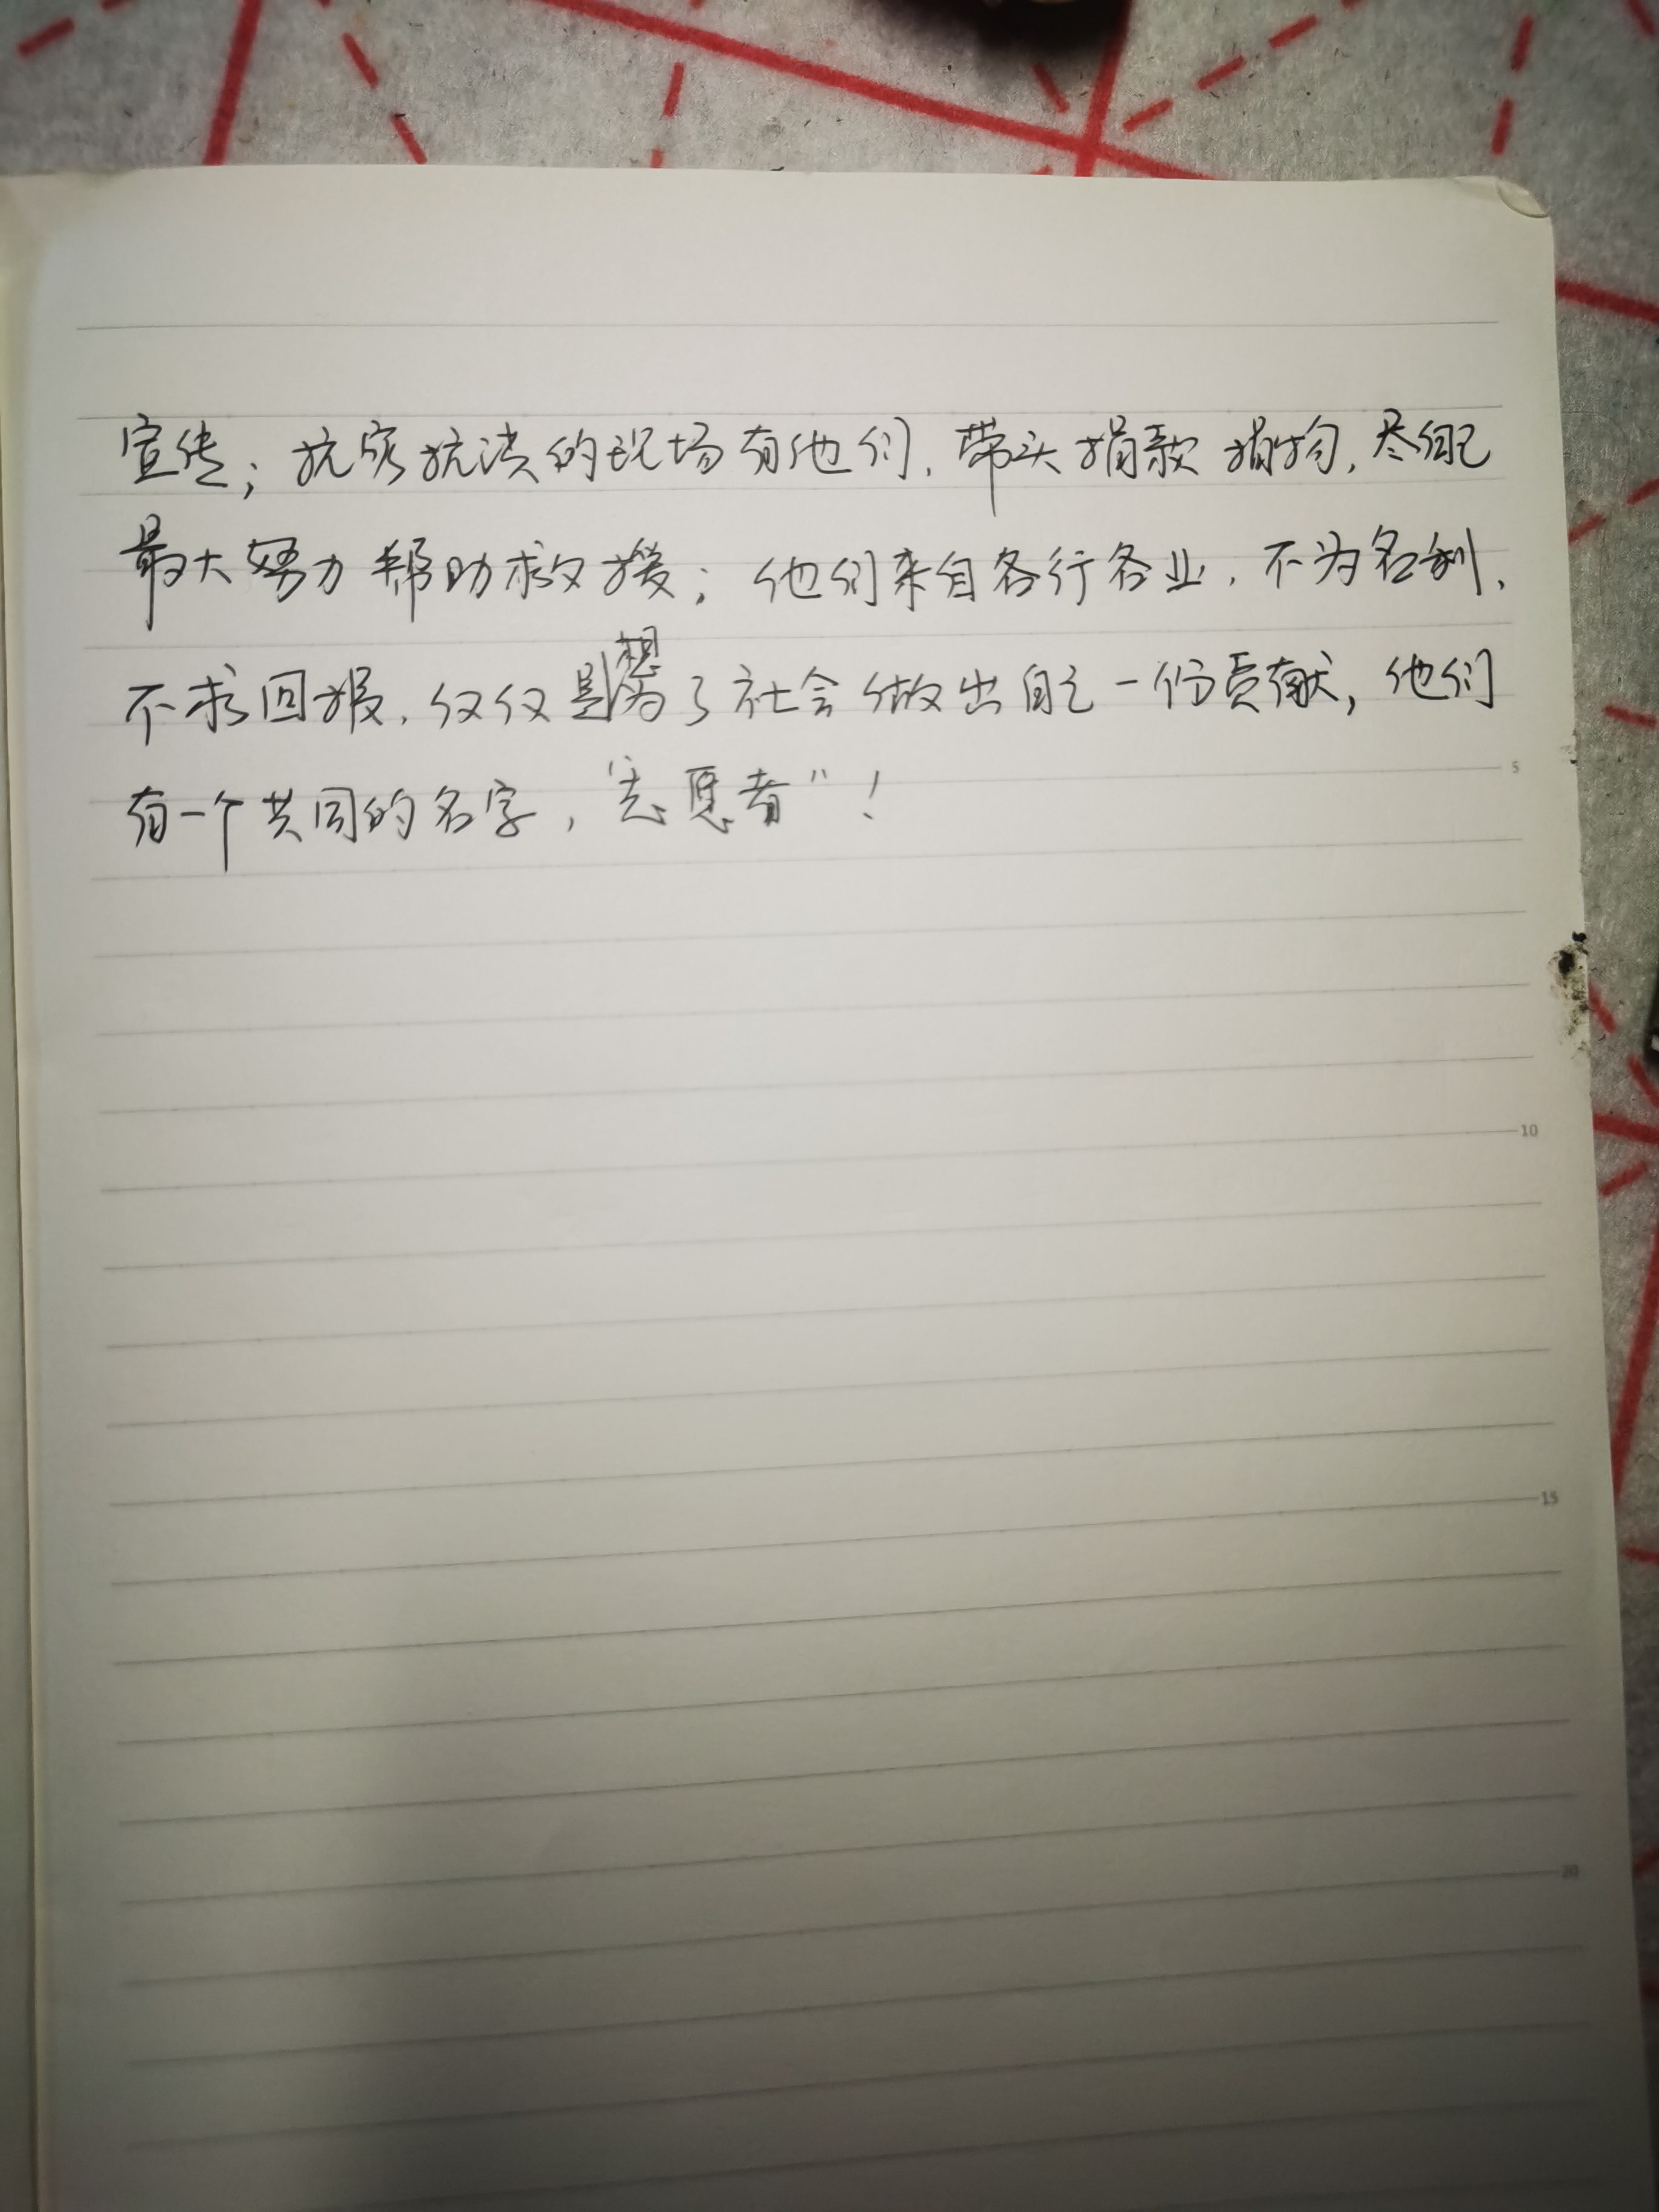 宣传；抗灾抗洪的现场有他们，带头捐款捐物，尽自己
最大努力帮助救援；他们来自各行各业，不为名利，
不求回报，仅仅是想为了社会做出自己一份贡献，他们
有一个共同的名字，“志愿者”！
5
10
15
20